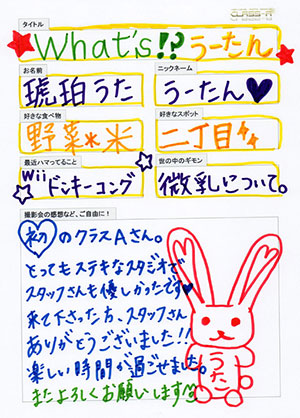 CLASS-A
タイトル
What's!?うーたん
お名前
ニックネーム
琥珀うた
うーたん♥
好きな食べ物
好きなスポット
野菜*米
二丁目
最近ハマってること
世の中のギモン
Wiiドンキーコング
微乳について。
撮影会の感想など、ご自由に!
初のクラスAさん。
とってもステキなスタジオで
スタッフさんも優しかったです♥
来て下さった方、スタッフさん
ありがとうございました!!
楽しい時間が過ごせました。
またよろしくお願いします
うた